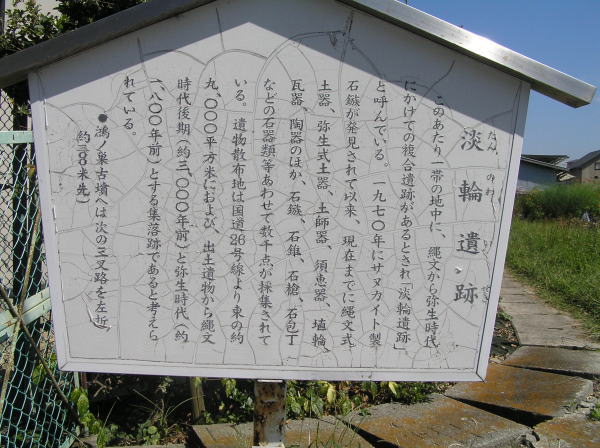 淡輪遺跡
たんのわ
このあたり一帯の地中に、縄文から弥生時代
にかけての複合遺跡があるとされ「淡輪遺跡」
と呼んでいる。一九七〇年にサヌカイト製
石鏃が発見されて以来、現在までに縄文式
土器、弥生式土器、土師器、須恵器、埴輪、
瓦器、陶器のほか、石鏃、石錐、石槍、石包丁
などの石器類等あわせて数千点が採集されて
いる。遺物散布地は国道26号線より東の約
九、〇〇〇平方米におよび、出土遺物から縄文
時代後期（約三、〇〇〇年前）と弥生時代（約
一、八〇〇年前）とする集落跡であると考えら
れている。
●鴻ノ巣古墳へは次の三叉路を左折
（約三〇米先）